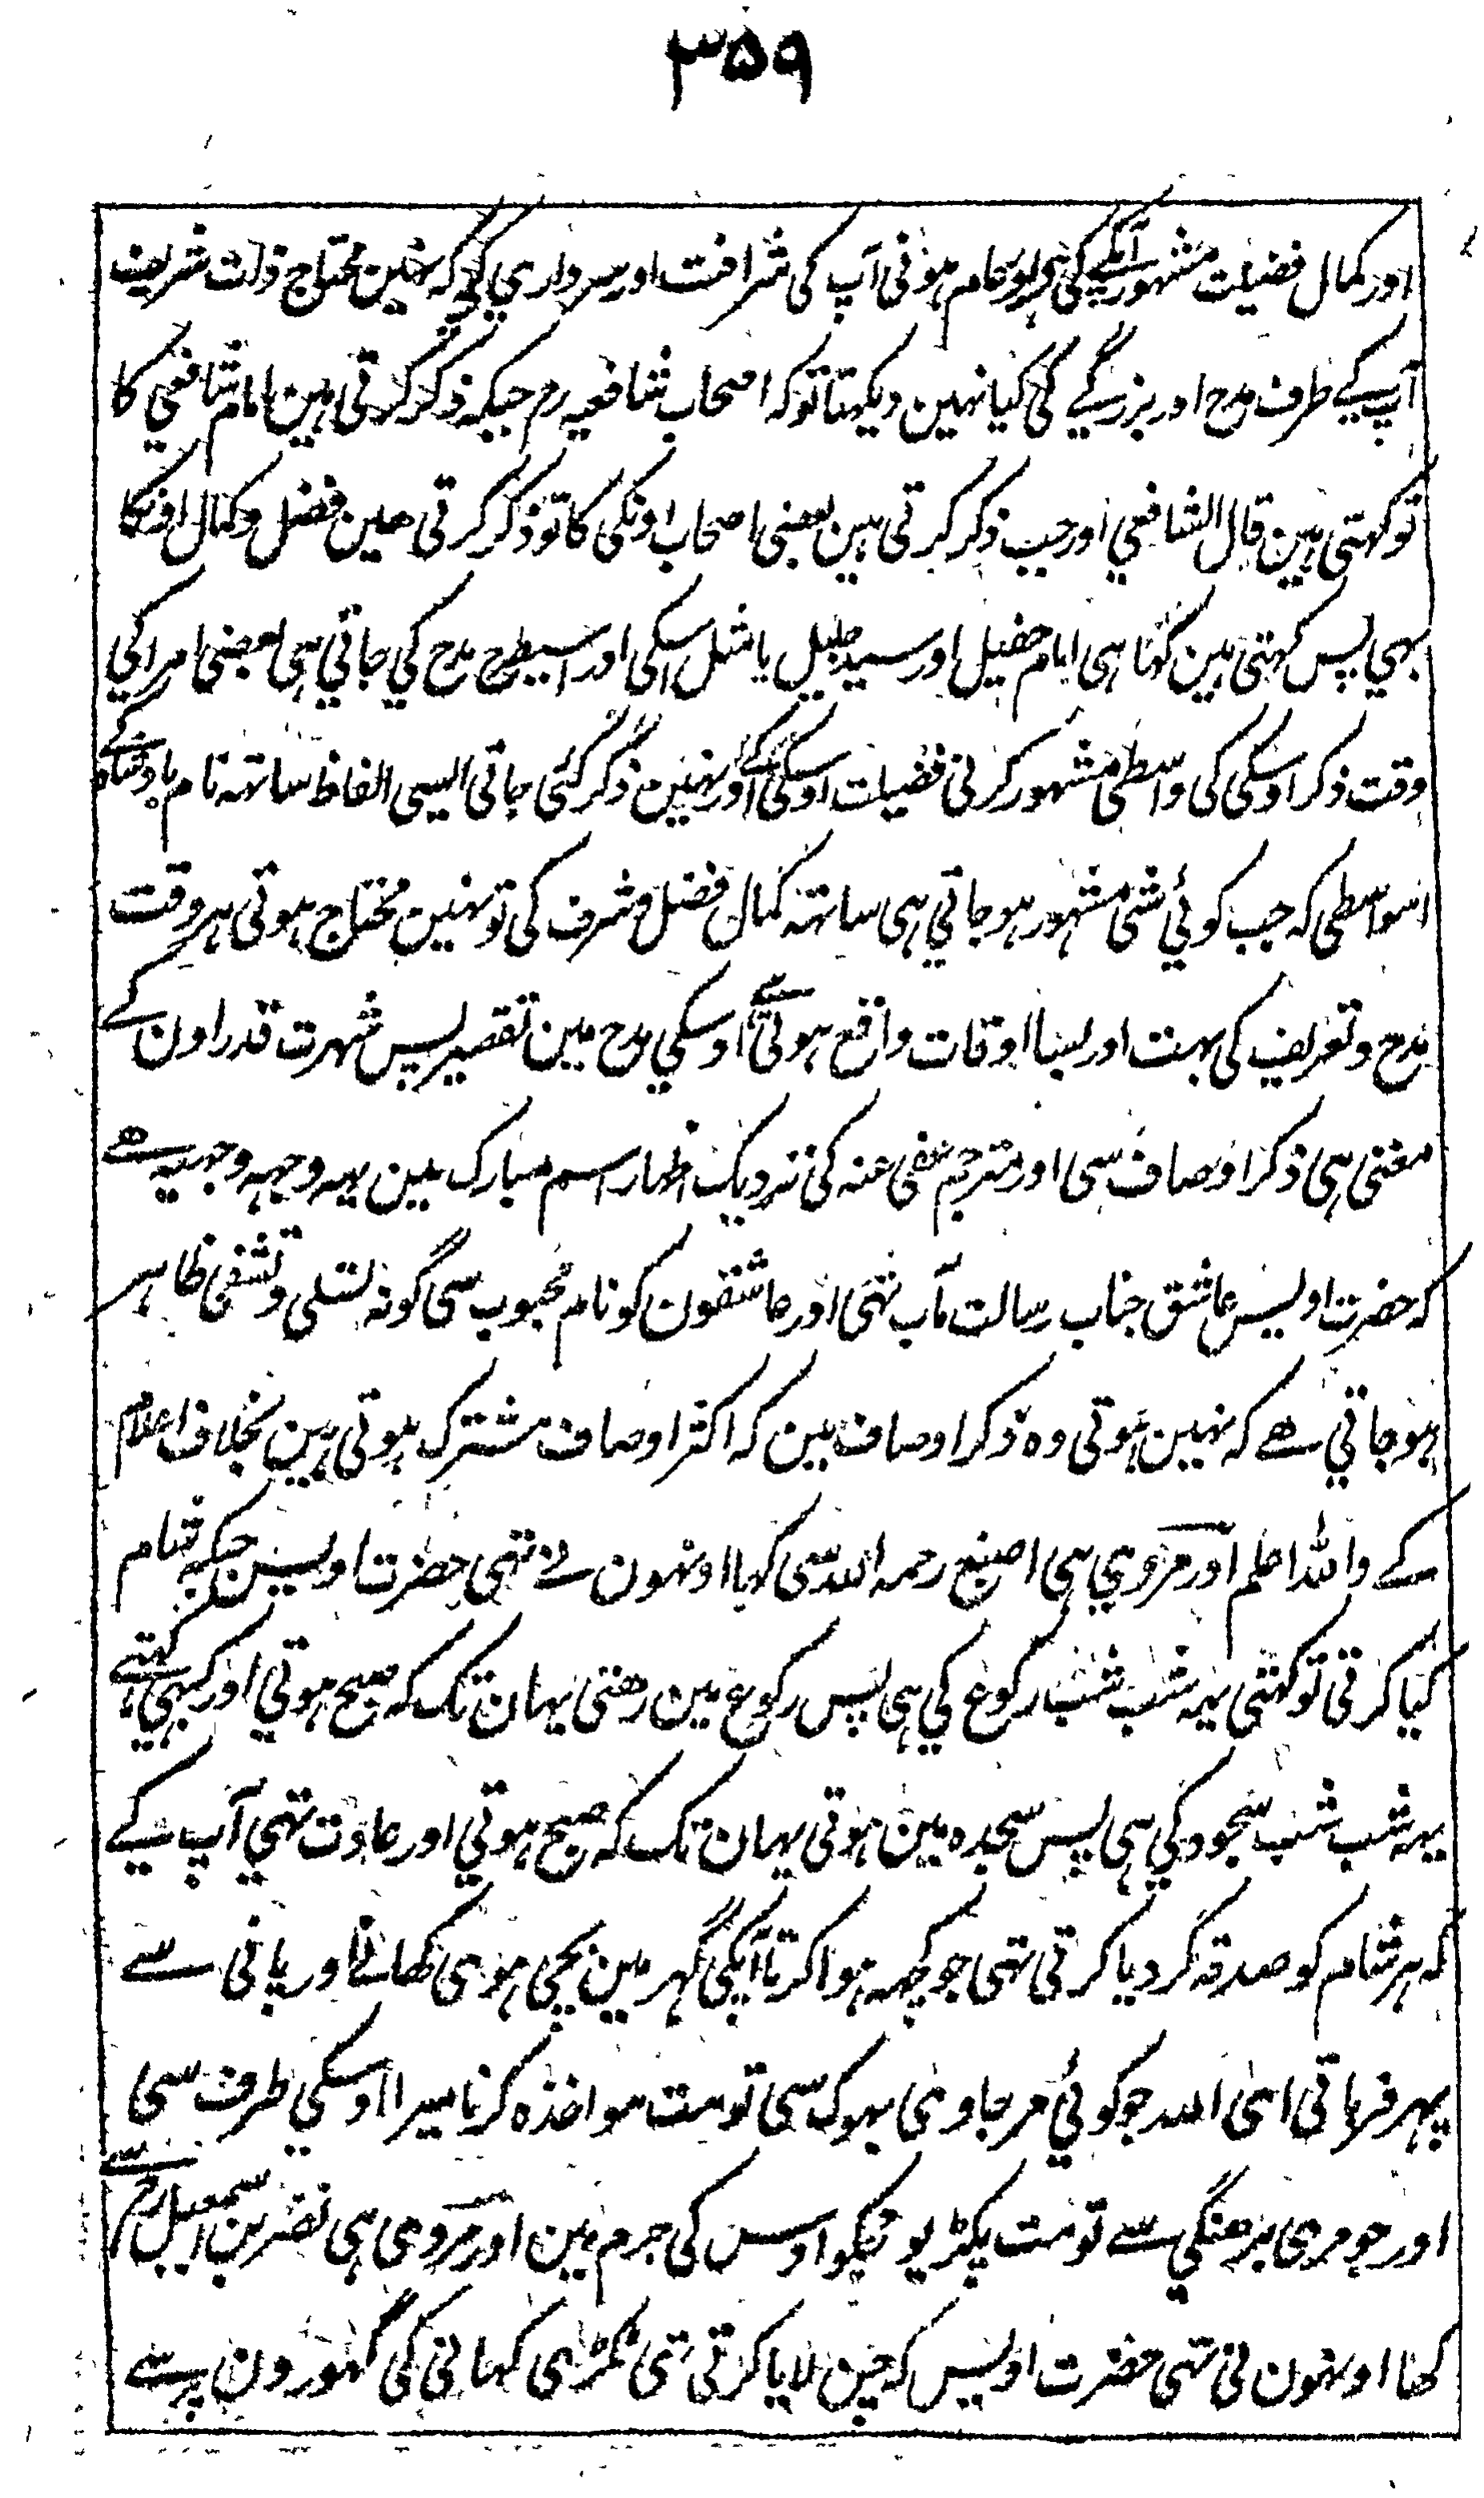 ۳۵۹
اور کمال فضیلت مشہور آپکی کی اور عام ہونی آپ کی شرافت اور سرداری کی کہ نہین محتاج ذات شریف
آپ کے طرف مدح اور بزرگے کی کیا نہین دیکہتا تو کہ اصحاب شافعیہ رح جبکہ ذکر کرتی ہین امام شافعي کا
تو کہتی ہین قال الشافعي اور جب ذکر کرتی ہین بعضی اصحاب اونکی کا تو ذکر کرتی ھین فضل و کمال اونکا
بہي پس کہتی ہین کہا ہی امام حفیل اور سید جلیل یا مثل اسکی اور اسیطرح مدح کي جاتي ہی بعضی امرا کي
وقت ذکر اوسکی کی واسطی مشہور کرنی فضیلت اوسکی کے اور نہین ذکر کئی جاتی ایسی الفاظ ساتہ نام بادشاہ کے
اسواسطی کہ جب کوئی شی مشہور ہو جاتي ہی ساتہ کمال فضل و شرف کی تو نہین محتاج ہوتی ہر وقت
مدح و تعریف کی بہت اور بسا اوقات واقع ہوتی ہے اوسکي مدح مین تقصیر پس شہرت قدر اون کے
مغنی ہی ذکر اوصاف سی اور مترجم عفی عنہ کی نزدیک اظہار اسم مبارک مین یہہ وجہہ وجہیہ ہے
کہ حضرت اویس عاشق جناب رسالت مآب تہی اور عاشقون کو نام محبوب سی گونہ تسلی و تشفی ظاہر
ہو جاتي ہے کہ نہین ہوتی وہ ذکر اوصاف مین کہ اکثر اوصاف مشترک ہوتی ہین بخلاف اعلام
کے واللہ اعلم اور مروي ہی اصبغ رحمہ اللہ سی کہا اونہون نے تہی حضرت اویس جبکہ شام
کیا کرتی تو کہتی یہ شب شب رکوع کي ہی پس رکوع مین رھتی یہان تک کہ صبح ہوتي اور کبہي کہتے
یہ شب شب سجود کي ہی پس سجدہ مین ہوتی یہان تک کہ صبح ہوتي اور عادت تہي آپ کے
کہ ہر شام کو صدقہ کر دیا کرتی تہی جو کچہہ ہوا کرتا آپکی گہر مین بچی ہوی کھانے اور پانی سے
پہر فرماتی الہی اللہ جو کوئی مر جاوی بہوک سی تو مت مواخذہ کرنا میرا اوسکي طرف سی
اور جو مری برھنگي سے تو مت پکڑیو مجکو اوس کی جرم مین اور مروی ہی نضر بن اسمعیل رح سے
کہا اونہون نی تہی حضرت اویس کہ چن لایا کرتی تہی ٹکڑی کہانی کی گہورون پر سے